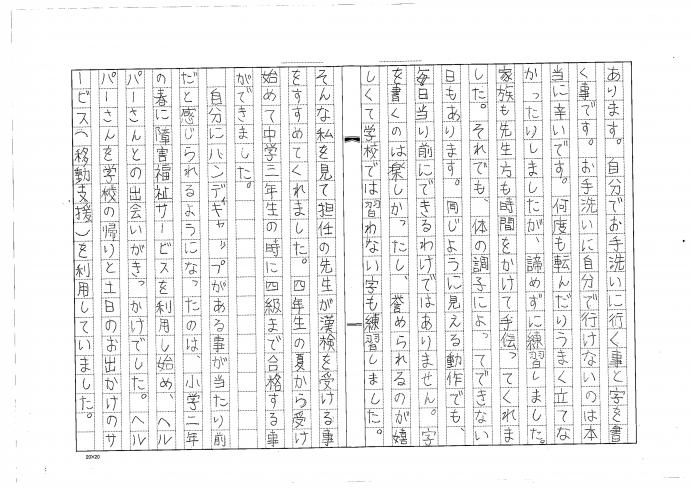 あります。自分でお手洗いに行く事と字を書
く事です。お手洗いに自分で行けないのは本
当に辛いです。何度も転んだりうまく立てな
かったりしましたが、諦めずに練習しました。
家族も先生方も時間をかけて手伝ってくれま
した。それでも、体の調子によってできない
日もあります。同じように見える動作でも、
毎日当り前にできるわけではありません。字
を書くのは楽しかったし、誉められるのが嬉
しくて学校では習わない字も練習しました。
そんな私を見て担任の先生が漢検を受ける事
をすすめてくれました。四年生の夏から受け
始めて中学三年生の時に四級まで合格する事
ができました。
自分にハンディキャップがある事が当たり前
だと感じられるようになったのは、小学二年
の春に障害福祉サービスを利用し始め、ヘル
パーさんとの出会いがきっかけでした。ヘル
パーさんを学校の帰りと土日のお出かけのサ
ービス(移動支援)を利用していました。
20×20